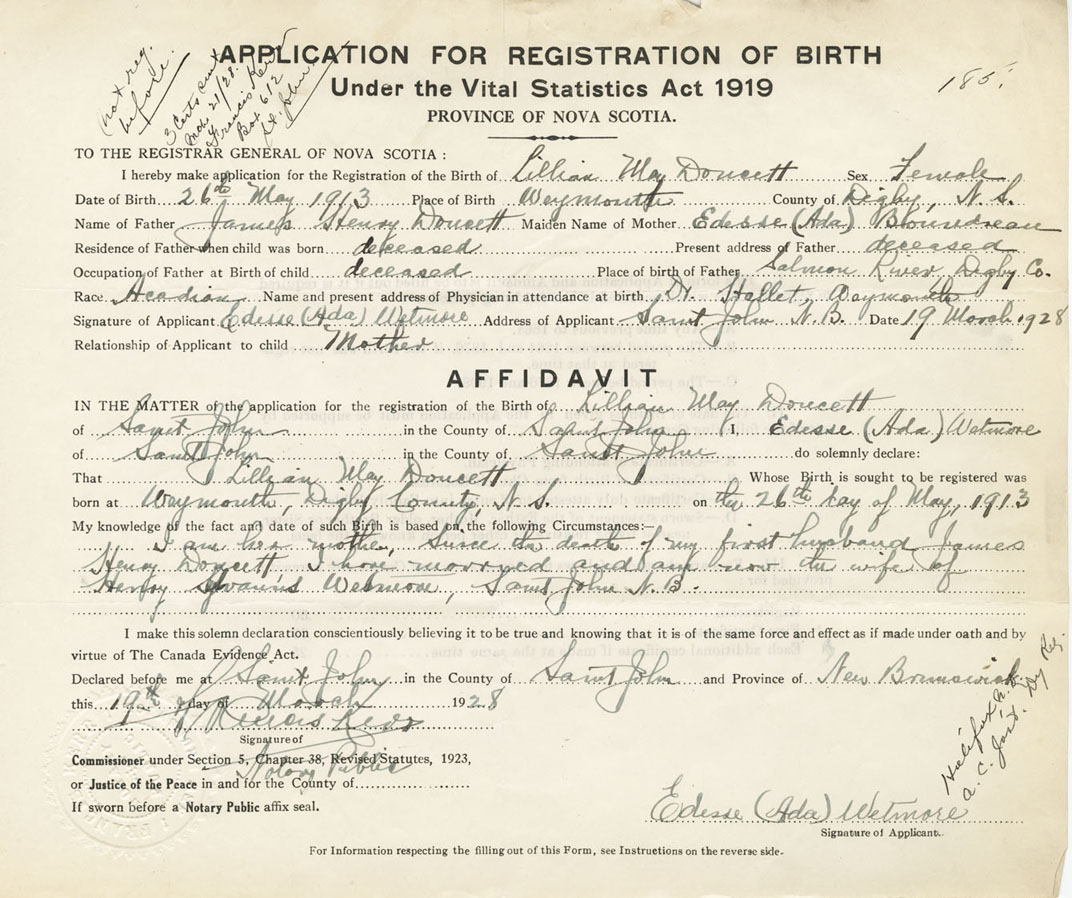 APPLICATION FOR REGISTRATION OF BIRTH
Under the Vital Statistics Act 1919
PROVINCE OF NOVA SCOTIA.
185.
(not reg.
before.
3 Certs sent
Mch 21/28.
Francis Kerr
Box 612
St. John
TO THE REGISTRAR GENERAL OF NOVA SCOTIA :
I hereby make application for the Registration of the Birth of Lillian May Doucett Sex Female
Date of Birth 26th May 1913 Place of Birth Weymouth County of Digby, N.S.
Name of Father James Henry Doucett Maiden Name of Mother Edesse (Ada) Bouudreau
Residence of Father when child was born deceased Present address of Father deceased
Occupation of Father at Birth of child deceased Place of birth of Father Salmon River, Digby Co.
Race Acadian Name and present address of Physician in attendance at birth Dr. Hallet, Weymouth
Signature of Applicant Edesse (Ada) Wetmore Address of Applicant Saint John N.B. Date 19 March 1928
Relationship of Applicant to child Mother
AFFIDAVIT
IN THE MATTER of the application for the registration of the Birth of Lillian May Doucett
of Saint John in the County of Saint John I, Edesse (Ada) Wetmore
of Saint John in the County of Saint John do solemnly declare:
That Lillian May Doucett Whose Birth is sought to be registered was
born at Weymouth, Digby County, N.S. on the 26th day of May, 1913
My knowledge of the fact and date of such Birth is based on the following Circumstances:—
I am her mother, Since the death of my first husband James
Henry Doucett I have married and am now the wife of
Henry Wetmore, Saint John N.B.
I make this solemn declaration conscientiously believing it to be true and knowing that it is of the same force and effect as if made under oath and by
virtue of The Canada Evidence Act.
Declared before me at Saint John in the County of Saint John and Province of New Brunswick
this 19th day of March 1928
Francis Kerr
Signature of
Commissioner under Section 5, Chapter 38, Revised Statutes, 1923,
Notary Public
or Justice of the Peace in and for the County of
If sworn before a Notary Public affix seal.
Halifax N.S.
A. C. Jost. Dy Reg.
Edesse (Ada) Wetmore
Signature of Applicant.
For Information respecting the filling out of this Form, see Instructions on the reverse side-